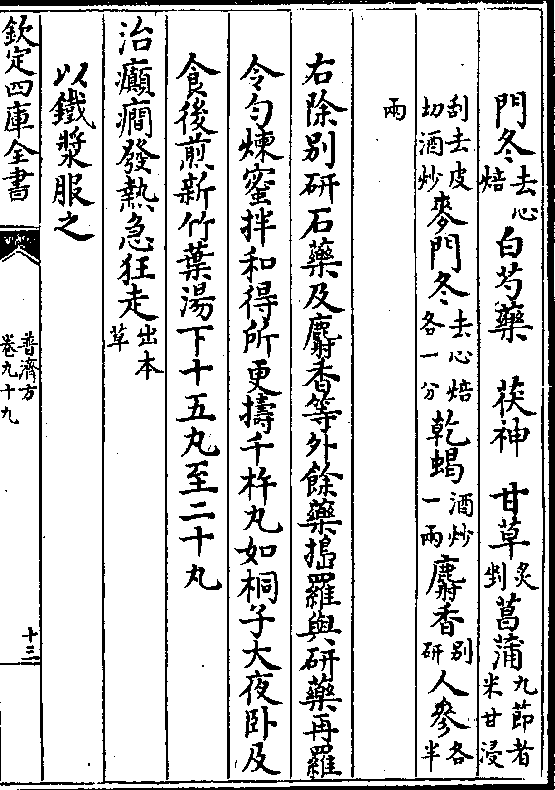 門冬去心焙 白芍藥 茯神 甘草炙剉 菖蒲九節者米甘浸
刮去皮切酒炒 麥門冬去心焙各一分 乾蝎酒炒一兩 麝香别研 人參各半
兩
右除别研石藥及麝香等外餘藥搗羅與研藥再羅
令勻煉蜜拌和得所更擣千杵丸如桐子大夜卧及
食後煎新竹葉湯下十五丸至二十丸
治癲癇發熱急狂走出本草
以鐵漿服之
欽定四庫全書
普濟方
卷九十九
十三